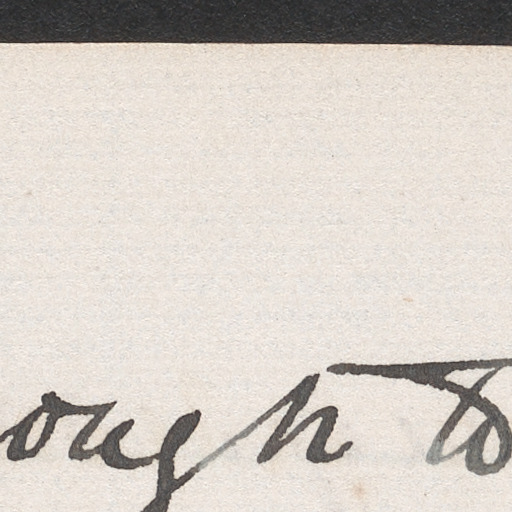 ough to